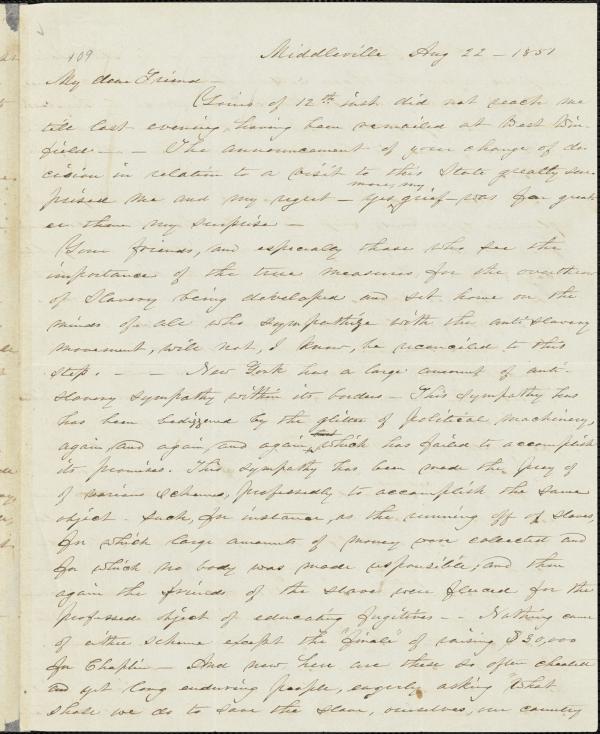 109
Middleville Aug 22 - 1851
My dear Friend -
Yours of 12th inst did not reach me
till last evening, having been remailed at West Win-
field - - The announcement of your change of de-
cision in relation to a visit to this State greatly sur-
prised me and my regret - yes, more, my grief - was far great-
er than my surprise -
Your friends, and especially those who see the
importance of the true measures for the overthrow
of Slavery being developed and set home on the
minds of all who sympathize with the anti slavery
movement, will not, I know, be reconciled to this
step. - - New York has a large amount of anti-
slavery sympathy within its borders - This sympathy has
has been bedizzened by the glitter of political machinery,
again, and again, and again, which has failed to accomplish
its promises. This sympathy has been made the prey of
of various schemes, professedly to accomplish the same
object. Such, for instance, as the running off of slaves,
for which large amounts of money were collected and
for which no body was made responsible, and then
again the friends of the slave were fleeced for the
professed object of educating fugitives - - Nothing came
of either scheme except the "finale" of raising $30,000
for Chaplin - And now, here are these so often cheated
and yet long enduring people, eagerly asking "What
shall we do to save the slave, ourselves, our country